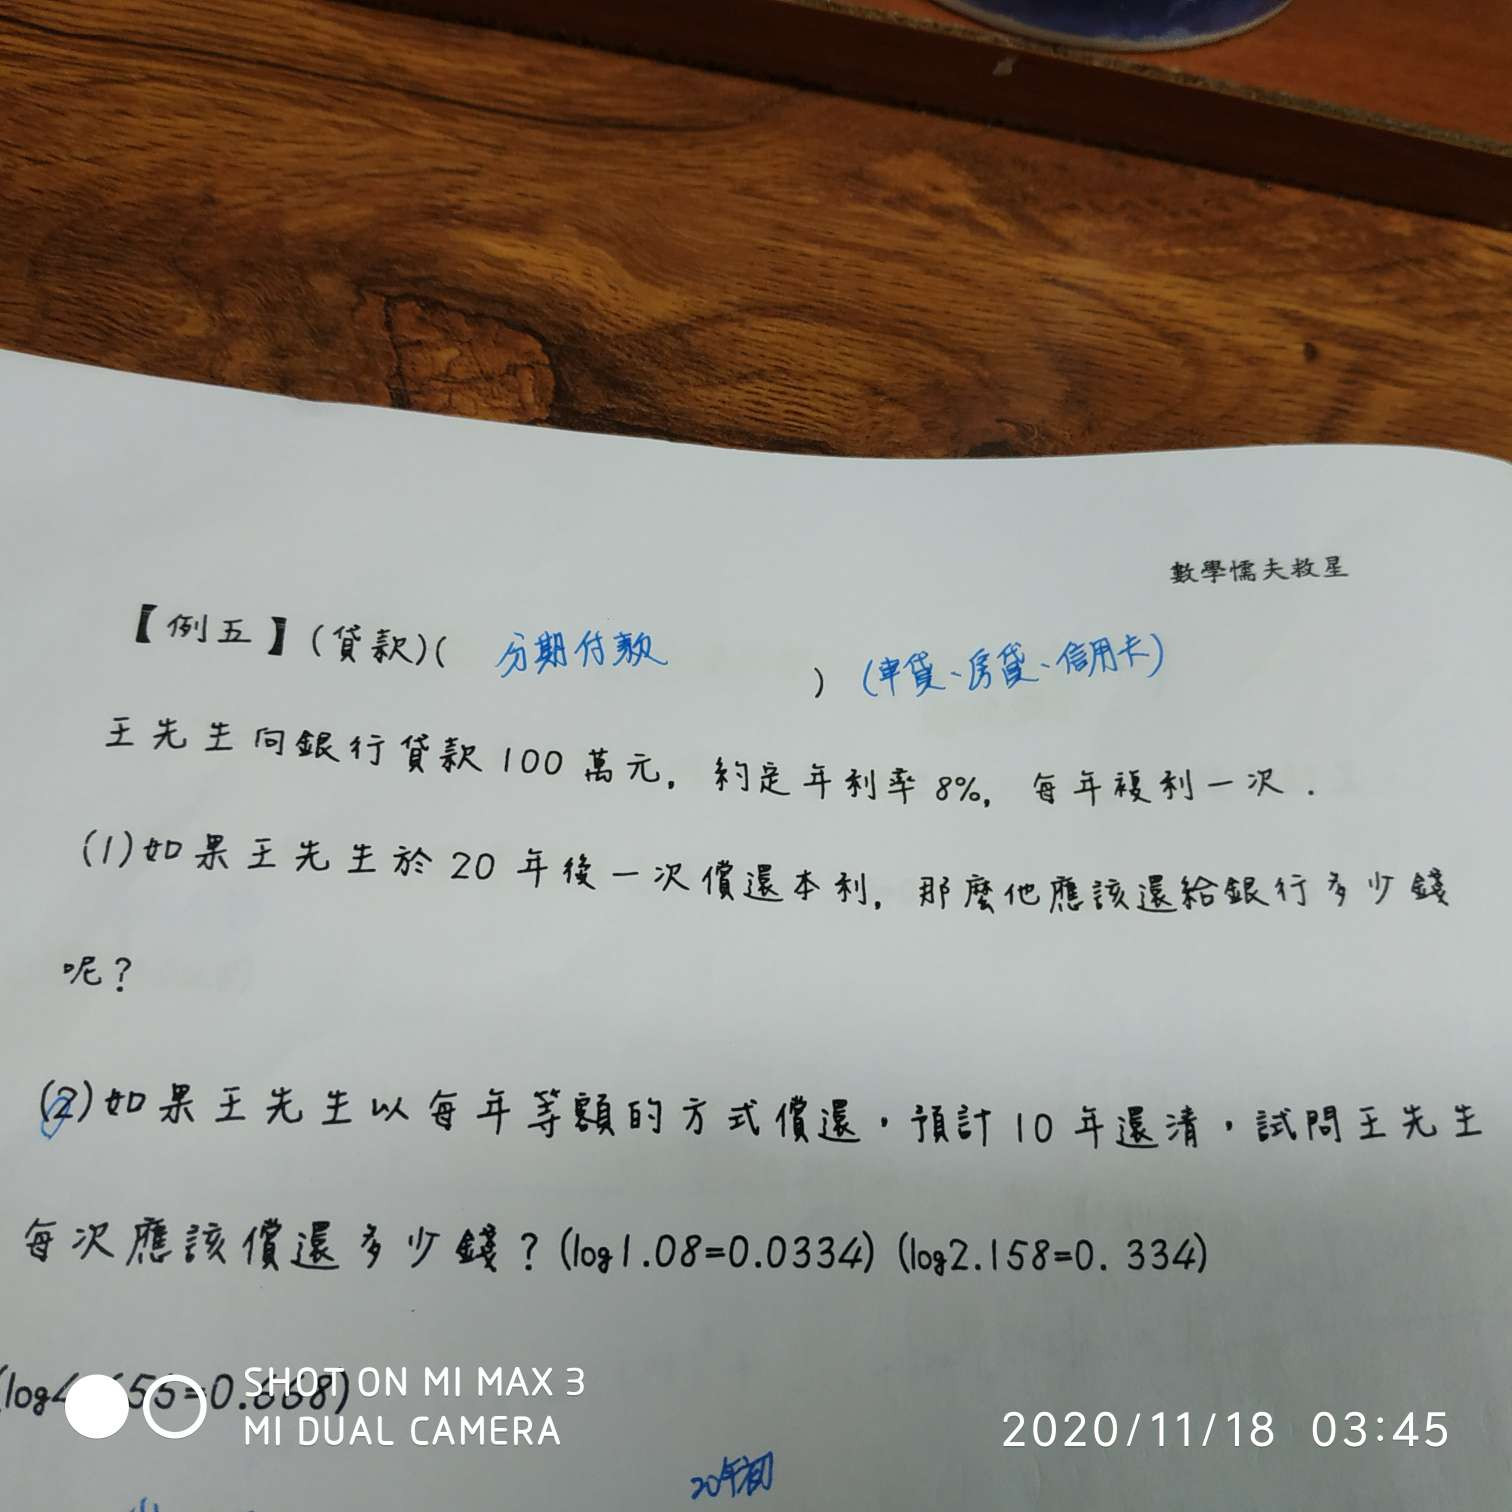 數學懦夫救星
【例五】(貸款)( 分期付款 ) (車貸、房貸、信用卡)
王先生向銀行貸款100萬元，約定年利率8%，每年複利一次．
(1)如果王先生於20年後一次償還本利，那麼他應該還給銀行多少錢
呢？
(2)如果王先生以每年等額的方式償還，預計10年還清，試問王先生
每次應該償還多少錢？(log1.08=0.0334) (log2.158=0. 334)
SHOT ON MI MAX 3
MI DUAL CAMERA
2020/11/18 03:45
20年初